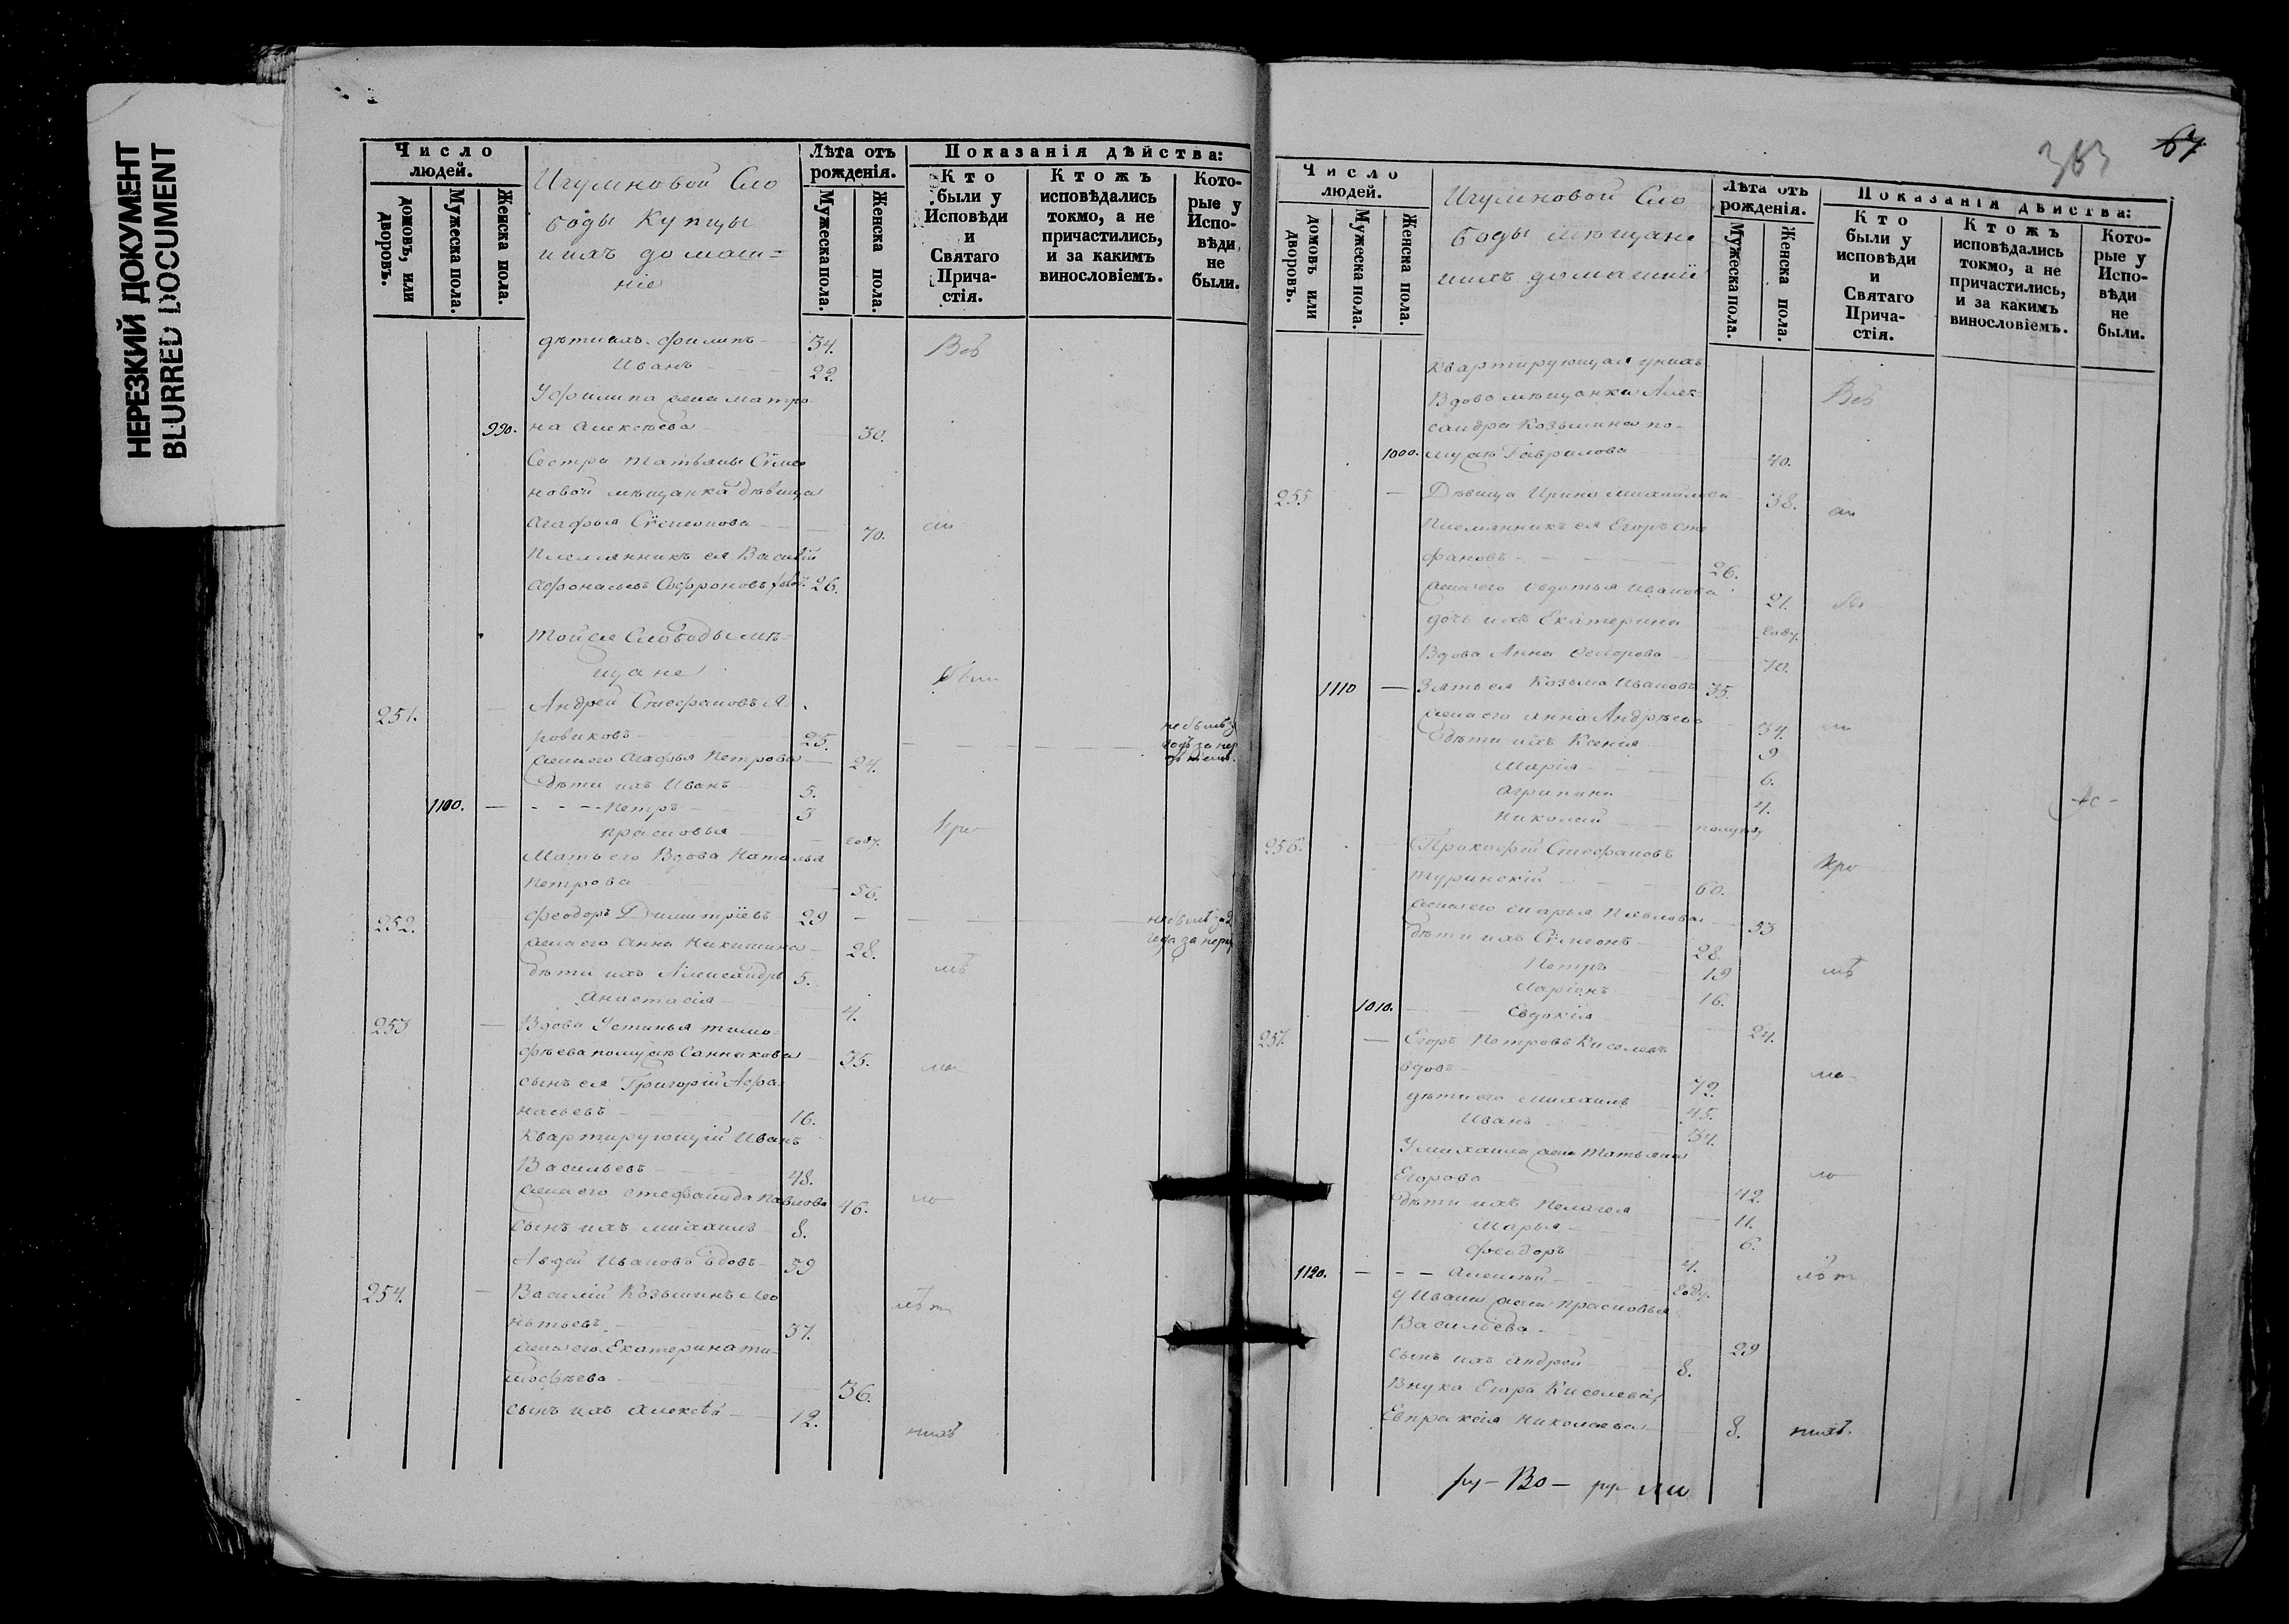 НЕРЕЗКИЙ ДОКУМЕНТ
BLURRED DOCUMENT
Число людей.
домовъ, или дворовъ.
Мужеска пола.
Женска пола.
Игумновой Сло
боды Купцы
и ихъ домаш=
ніе
Лѣта отъ рожденія.
Мужеска пола.
Женска пола.
Показанія дѣйства:
Кто были у Исповѣди и Святаго Причастія.
Ктожъ исповѣдались токмо, а не причастились, и за какимъ винословіемъ.
Которые у Исповѣди не были.
дѣти ихъ Филипъ 34. Всѣ
Иванъ 22.
У Филипа жена Матро-
990. на Алексѣева 30.
Сестра Татьяны Сѵмео
новой мѣщанка дѣвица
Агафья Сѵмеонова 70.
Племянникъ ея Василій
26.
Той же Слободы мѣ-
щане
251. Андрей Стефановъ
25.
жена его Агафья Петрова 24.
дѣти ихъ Иванъ 5.
1100. Петръ 3
Прасковья году.
Мать его Вдова Наталья
Петрова 56.
252. Феодоръ Димитріевъ 29
жена его Анна Никитина 28.
дѣти ихъ Александръ 5.
Анастасія 4.
253 Вдова Устинья Тимо-
фѣева по мужѣ Санникова 35.
сынъ ея Григорій Афа-
насьевъ 16.
Квартирующій Иванъ
Васильевъ 48.
жена его Стефанида Павлова 46.
сынъ ихъ Михаилъ 8.
Авдей Ивановъ вдовъ 59
254. Василій Козьминъ Лео
нтьевъ 37.
жена его Екатерина Ти-
мофѣева 36.
сынъ ихъ Алексѣй 12.
нихъ
363 67
Число людей.
домовъ или дворовъ.
Мужеска пола.
Женска пола.
Игумновой Сло
боды мѣщане
и ихъ домашніи
Лѣта отъ рожденія.
Мужеска пола.
Женска пола.
Показанія дѣйства:
Кто были у исповѣди и Святаго Причастія.
Ктожъ исповѣдались токмо, а не причастились, и за какимъ винословіемъ.
Которые у Исповѣди не были.
Квартирующая у нихъ
Вдова мѣщанка Алек- Всѣ
сандра Козьмина по-
1000. мужѣ Гаврилова 40.
255 Дѣвица Ирина Михайлова 38.
Племянникъ ея Егоръ Сте
фановъ 26.
жена его Авдотья Иванова 21.
дочь ихъ Екатерина году.
Вдова Анна Федорова 70.
1110 Зять ея Козьма Ивановъ 35.
жена его Анна Андрѣева 34.
дѣти ихъ Ксенія 9
Марія 6.
Агрипина 4.
Николай полугоду
256. Прокофій Стефановъ
Туринскій 60.
жена его Марья Павлова 53
дѣти ихъ Сѵмеонъ 28.
Петръ 19
Ларіонъ 16.
1010. Евдокія 24.
257. Егоръ Петровъ Киселевъ
вдовъ 72.
дѣти его Михаилъ 45.
Иванъ 34.
У Михаила жена Татьяна
Егорова 42.
дѣти ихъ Пелагея 11.
Марья 6.
Феодоръ 4.
1120. Алексѣй году.
У Ивана жена Прасковья
Васильева 29
сынъ ихъ Андрей 8.
Внука Егора Киселева
Евпраксія Николаева 8. нихъ.